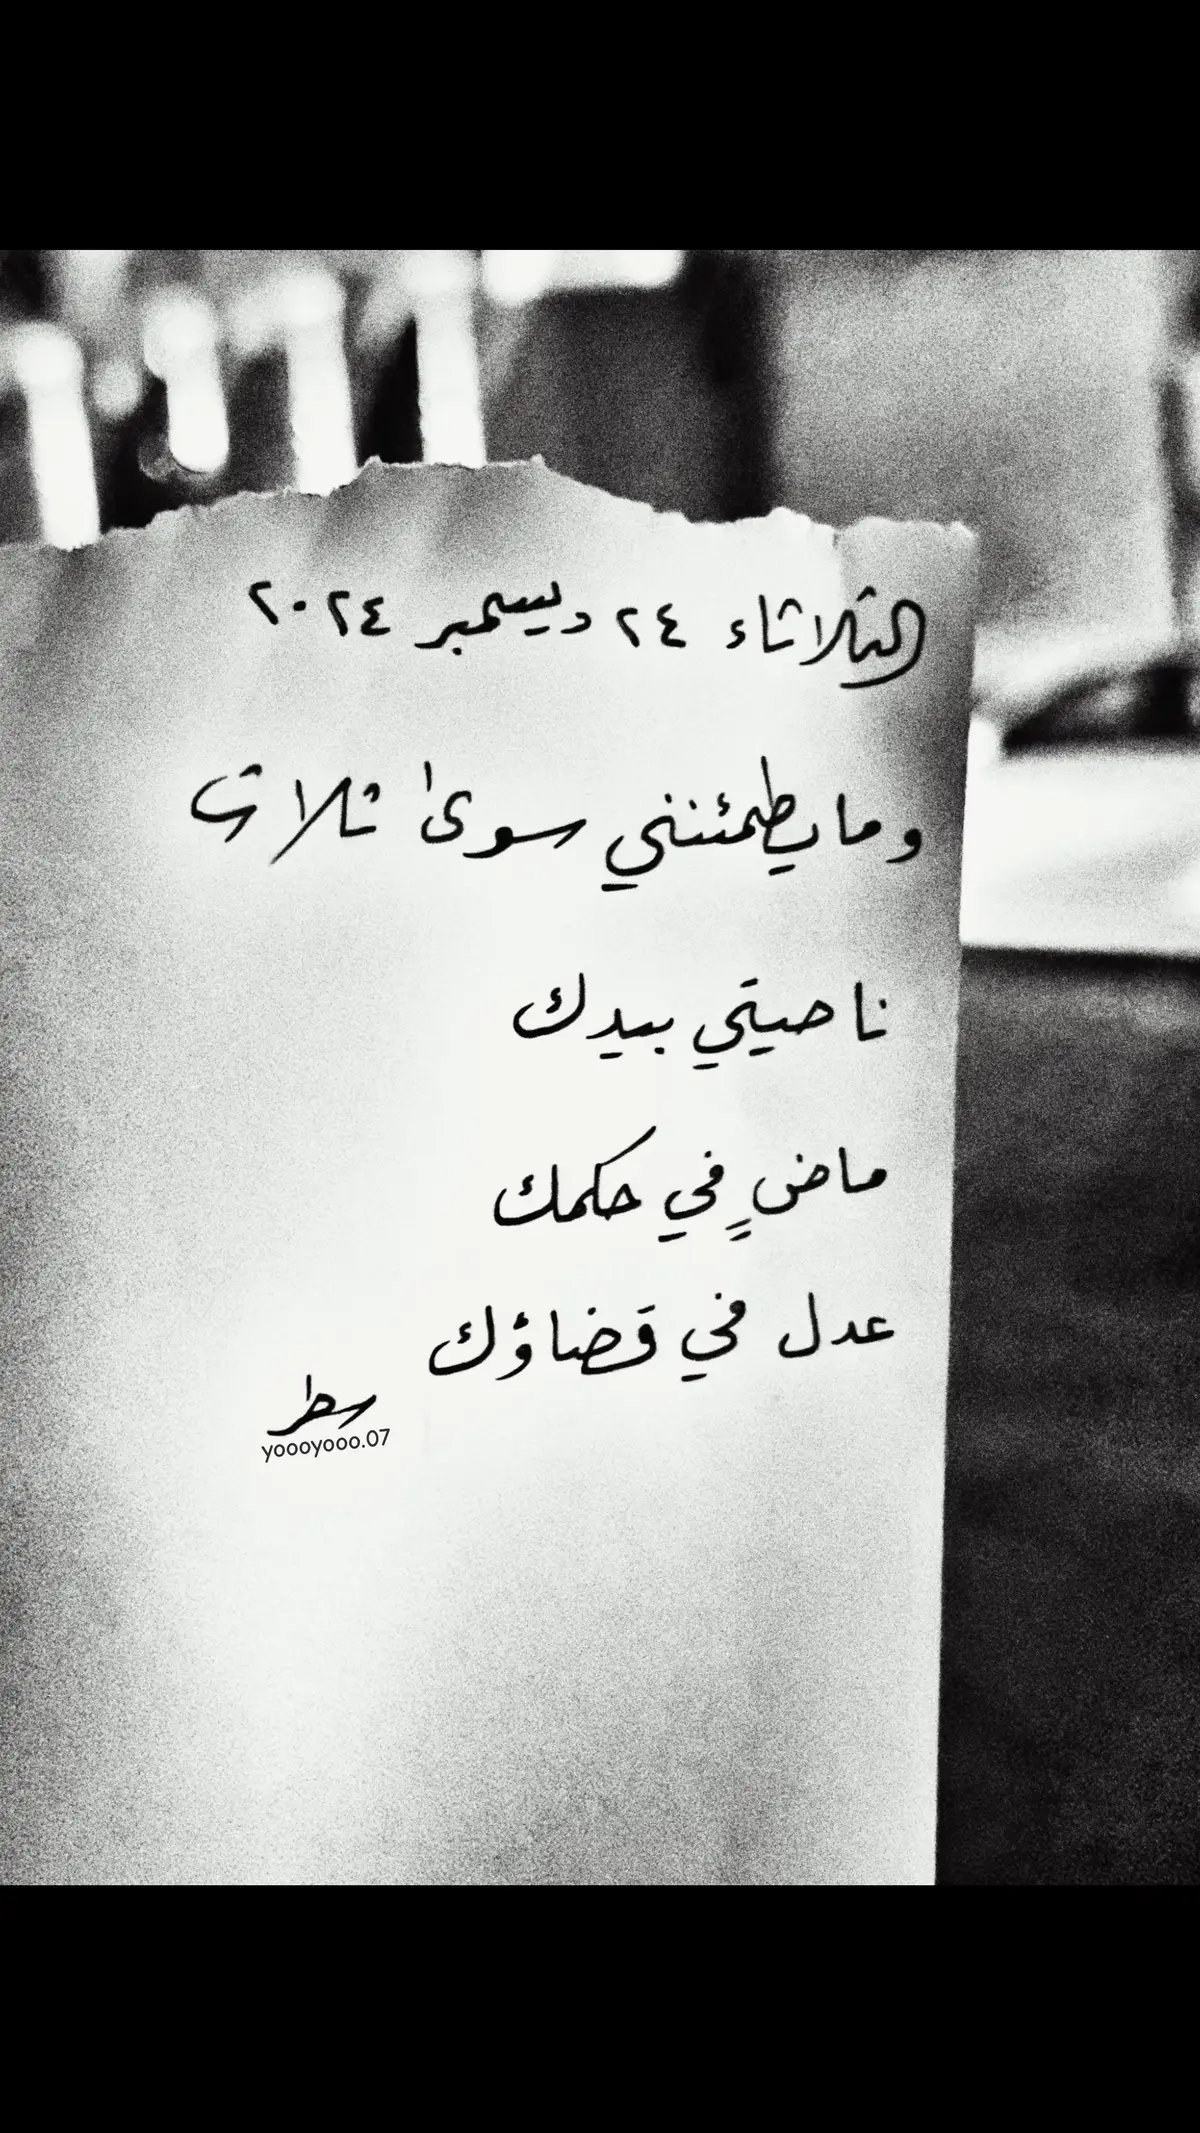 الثلاثاء ٢٤ ديسمبر ٢٠٢٤
وما يطمئنني سوىٰ ثلاث
ناحيتي بيدك
ماضٍ في حكمك
عدل في قضاؤك
سطر
yoooyooo.07